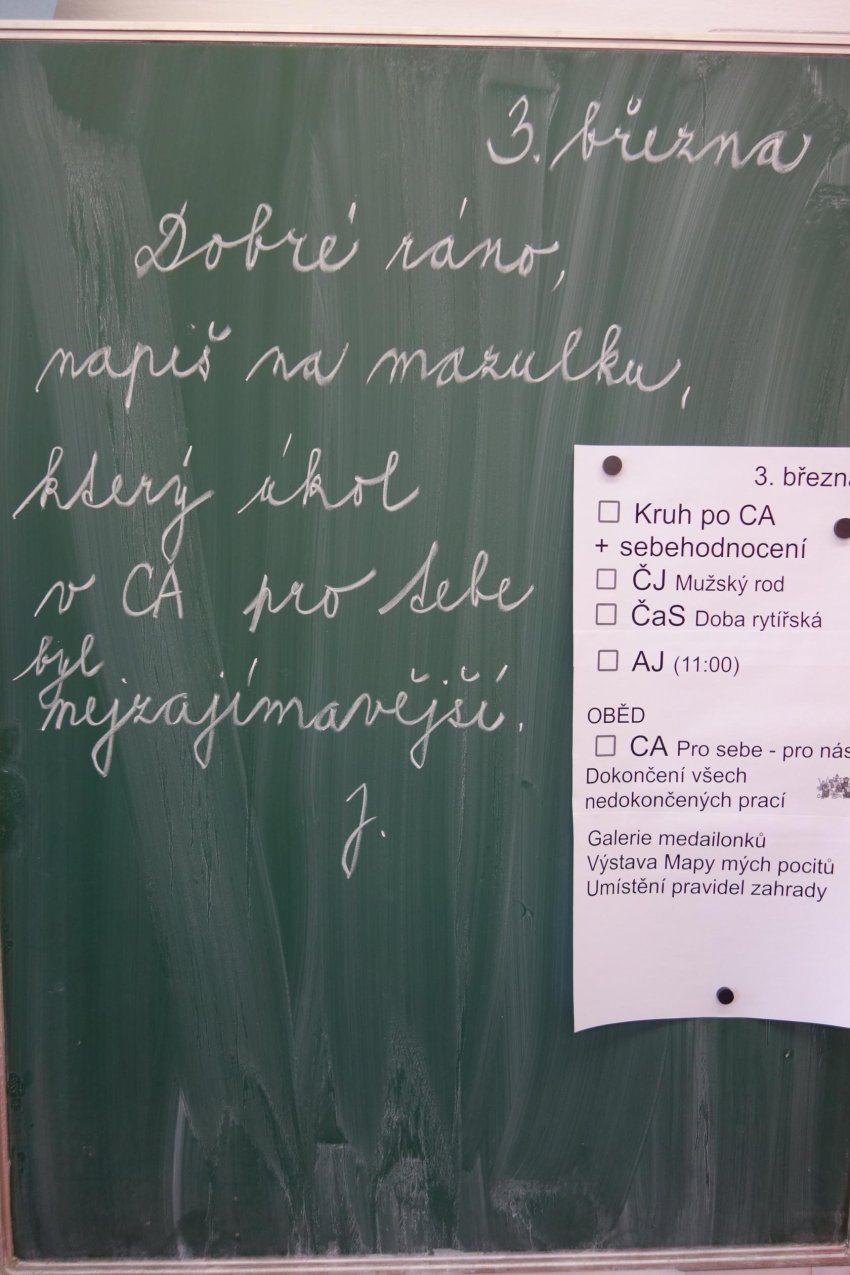 3. března
Dobré ráno,
napiš na mazulku,
který úkol
v CA pro tebe
byl
nejzajímavější.
J.
3. březn
Kruh po CA
+ sebehodnocení
ČJ Mužský rod
ČaS Doba rytířská
AJ (11:00)
OBĚD
CA Pro sebe - pro nás
Dokončení všech
nedokončených prací
Galerie medailonků
Výstava Mapy mých pocitů
Umístění pravidel zahrady